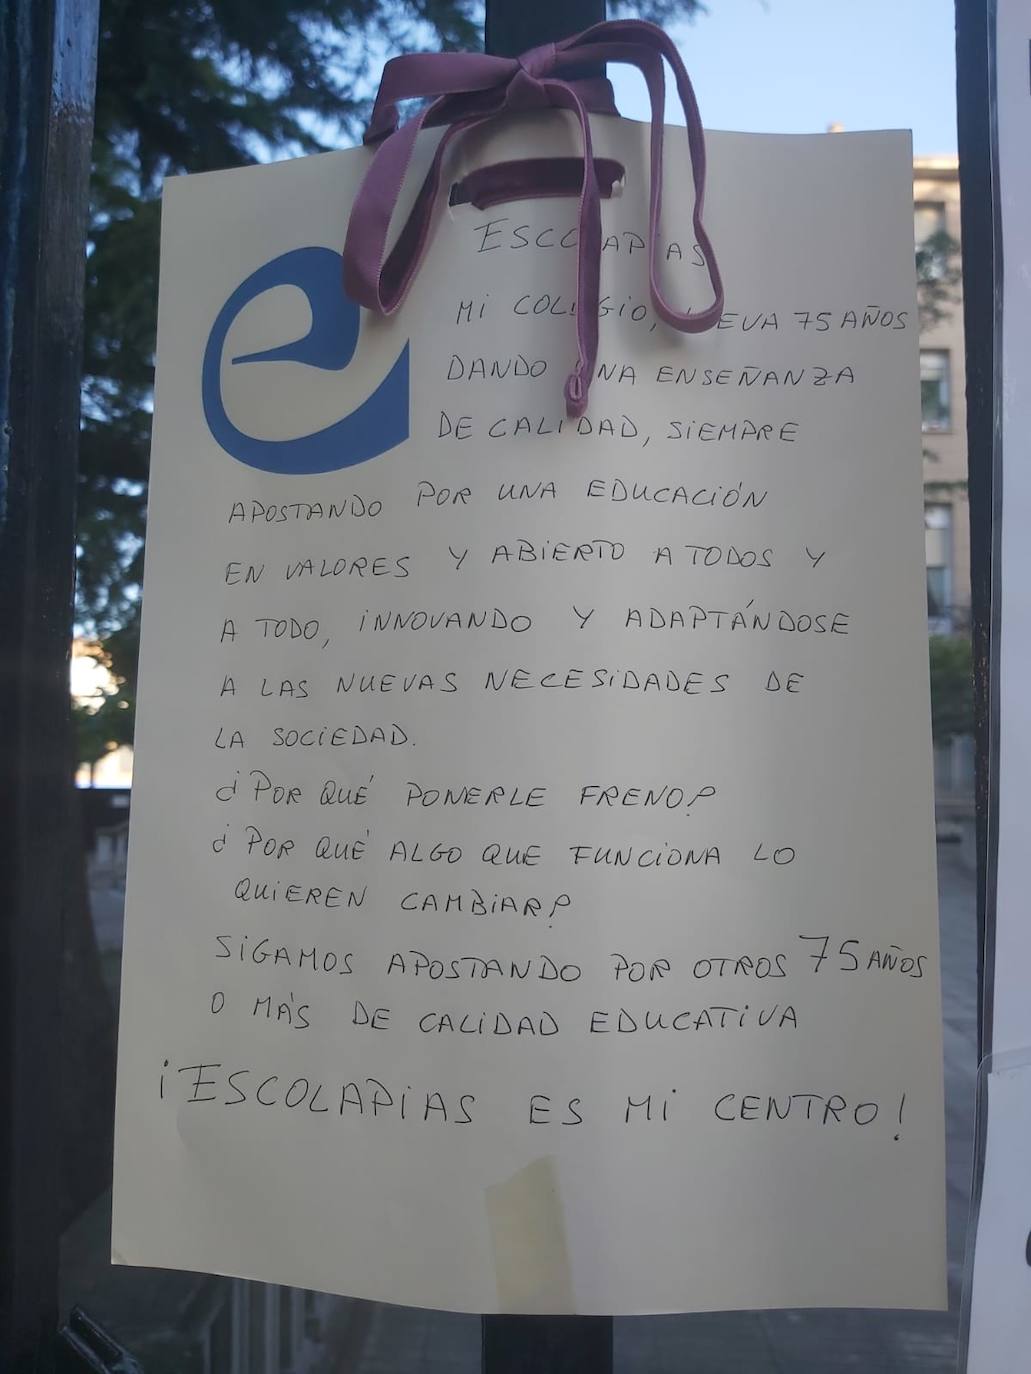 ESCOLAPIAS
Mi COLEGIO, LLEVA 75 AÑOS
DANDO UNA ENSEÑANZA
DE CALIDAD, SIEMPRE
APOSTANDO POR UNA EDUCACIÓN
EN VALORES Y ABIERTO A TODOS Y
A TODO, INNOVANDO Y ADAPTÁNDOSE
A LAS NUEVAS NECESIDADES DE
LA SOCIEDAD.
¿POR QUÉ PONERLE FRENO?
¿POR QUÉ ALGO QUE FUNCIONA LO
QUIEREN CAMBIAR?
SIGAMOS APOSTANDO POR OTROS 75 AÑOS
O MÁS DE CALIDAD EDUCATIVA
¡ESCOLAPIAS ES MI CENTRO!